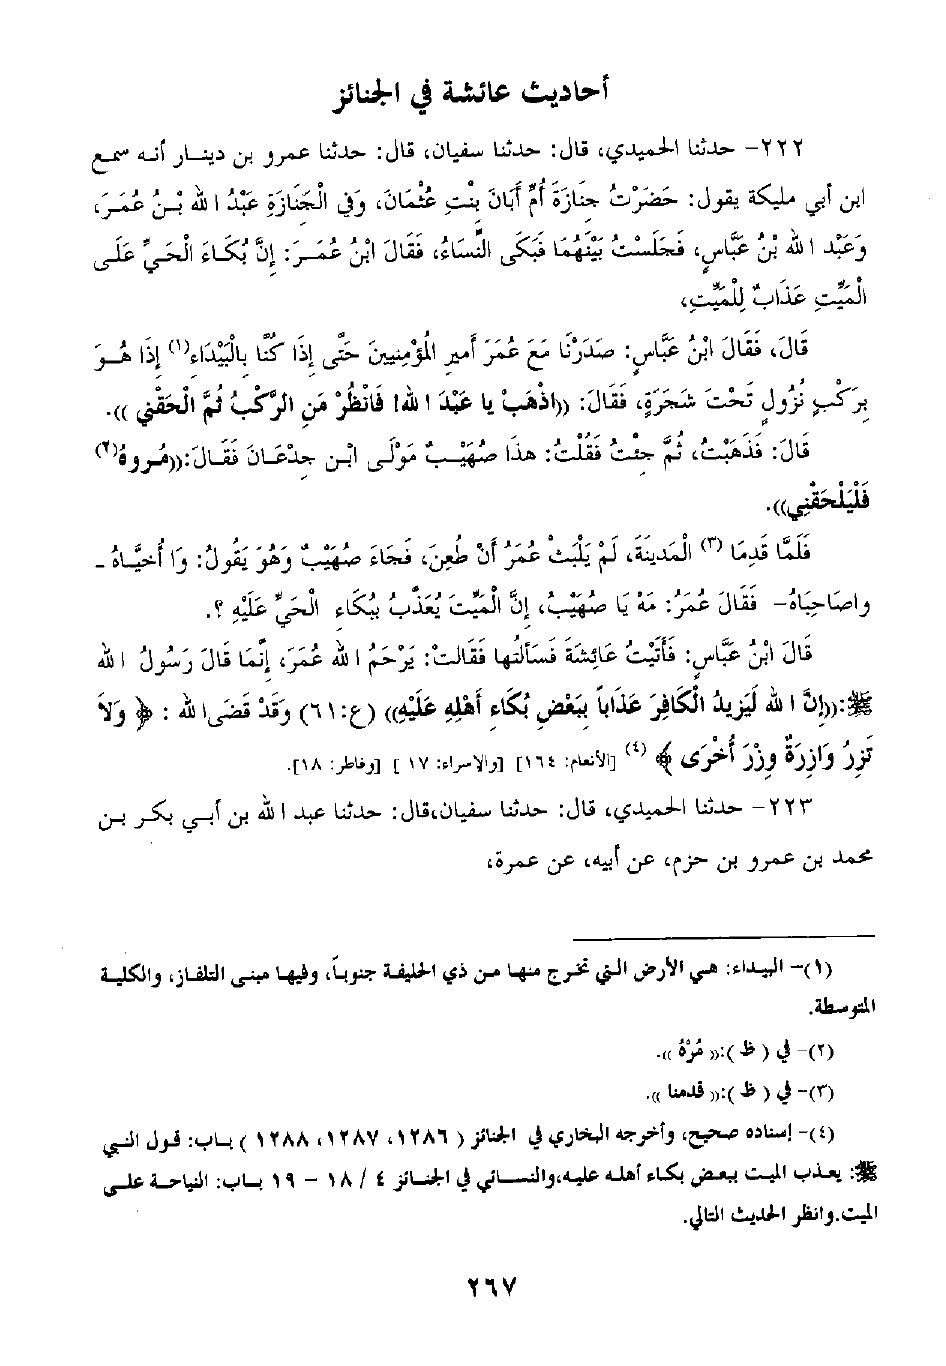 أحاديث عائشة في الجنائز
٢٢٢- حدثنا الحميدي، قال: حدثنا سفيان، قال: حدثنا عمرو بن دينار أنه سمع
ابن أبي مليكة يقول: حَضَرْتُ جِنَازَةَ أُمِّ أَبَانَ بِنْتِ عُثْمَانَ، وَفِي الْجَنَازَةِ عَبْدُ الله بْنُ عُمَرَ،
وَعَبْدِ الله بْنُ عَبَّاسٍ، فَجَلَسْتُ بَيْنَهُمَا فَبَكَى النِّسَاءُ، فَقَالَ ابْنُ عُمَرَ: إِنَّ بُكَاءَ الْحَيِّ عَلَى
الْمَيِّتِ عَذَابٌ لِلْمَيِّتِ،
قَالَ، فَقَالَ ابْنُ عَبَّاسٍ: صَدَرْنَا مَعَ عُمَرَ أَمِيرِ الْمُؤْمِنِينَ حَتَّى إِذَا كُنَّا بِالْبَيْدَاءِ(١) إِذَا هُوَ
بِرَكْبٍ نُزُولٍ تَحْتَ شَجَرَةٍ، فَقَالَ: ((اذْهَبْ يا عَبْدَ الله! فَانْظُرْ مَنِ الرَّكْبُ ثُمَّ الْحَقْنِي)).
قَالَ: فَذَهَبْتُ، ثُمَّ جِئْتُ فَقُلْتُ: هذَا صُهَيْبٌ مَوْلَى ابْنِ جدْعَانَ فَقَالَ:((مُروهُ(٢)
فَلْيَلْحَقْنِي)).
فَلَمَّا قَدِمَا (٣) الْمَدِينَةَ، لَمْ يَلْبَثْ عُمَرُ أَنْ طُعِنَ، فَجَاءَ صُهَيْبٌ وَهُوَ يَقُولُ: وَا أُخَيَّاهُ -
واصَاحِبَاهُ- فَقَالَ عُمَرُ: مَهْ يَا صُهَيْبُ، إِنَّ الْمَيِّتَ يُعَذَّبُ بِبُكَاءِ الْحَيِّ عَلَيْهِ ؟.
قَالَ ابْنُ عَبَّاسٍ: فَأَتَيْتُ عَائِشَةَ فَسَأَلْتُها فَقَالَتْ: يَرْحَمُ الله عُمَرَ، إِنَّمَا قَالَ رَسُولُ الله
ﷺ:((إِنَّ الله لَيَزِيدُ الْكَافِرَ عَذَاباً بِبَعْضِ بُكَاءِ أَهْلِهِ عَلَيْهِ)) (ع:٦١) وَقَدْ قَضَى الله : ﴿ وَلاَ
تَزِرُ وَازِرَةٌ وِزْرَ أُخْرَى ﴾ (٤) [الأنعام: ١٦٤] [والاسراء: ١٧ ] [وفاطر: ١٨].
٢٢٣- حدثنا الحميدي، قال: حدثنا سفيان،قال: حدثنا عبد الله بن أبي بكر بن
محمد بن عمرو بن حزم، عن أبيه، عن عمرة،
(١)- البيداء: هي الأرض التي تخرج منها من ذي الحليفة جنوباً، وفيها مبنى التلفاز، والكلية
المتوسطة.
(٢)- في ( ظ ):(( مُرْهُ )).
(٣)- في ( ظ ):(( قدمنا )).
(٤)- إسناده صحيح، وأخرجه البخاري في الجنائز ( ١٢٨٦، ١٢٨٧، ١٢٨٨ ) باب: قول النبي
ﷺ: يعذب الميت ببعض بكاء أهله عليه،والنسائي في الجنائز ٤ / ١٨ - ١٩ باب: النياحة على
الميت.وانظر الحديث التالي.
٢٦٧